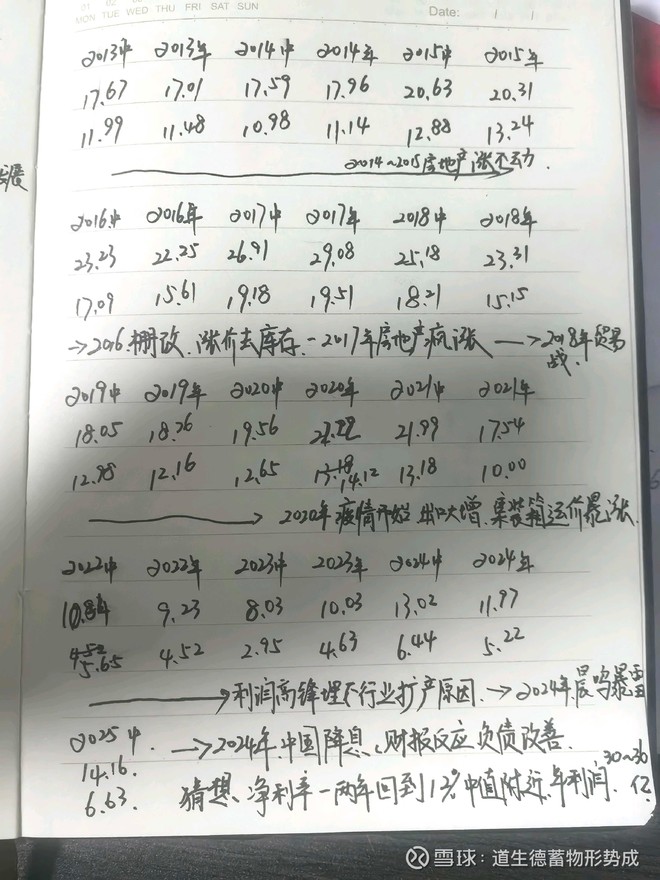 01 02
MON TUE WED THU FRI SAT SUN Date: / /
2013中 2013年 2014中 2014年 2015中 2015年
17.67 17.01 17.59 17.96 20.63 20.31
11.99 11.48 10.98 11.14 12.88 13.24
2014~2015房地产涨不动
2016中 2016年 2017中 2017年 2018中 2018年
23.23 22.25 26.91 29.08 25.18 23.31
17.09 15.61 19.18 19.51 18.21 15.15
→2016.棚改.涨价去库存.-2017年房地产疯涨 →2018年贸易
战.
2019中 2019年 2020中 2020年 2021中 2021年
18.05 18.76 19.56 21.99 17.54
12.98 12.16 12.65 14.12 13.18 10.00
→ 2020年疫情开始 出口大增.集装箱运价暴涨.
2022中 2022年 2023中 2023年 2024中 2024年
10.84 9.23 8.03 10.03 13.02 11.97
4.52
5.65 4.52 2.95 4.63 6.44 5.22
→利润高锋埋下行业扩产原因.→2024年晨鸣暴雷
2025中. →2024年.中国降息、财报反应负债改善.
14.16.
6.63. 猜想、净利率一两年回到12%中值附近.年利润.30~36亿.
雪球：道生德蓄物形势成